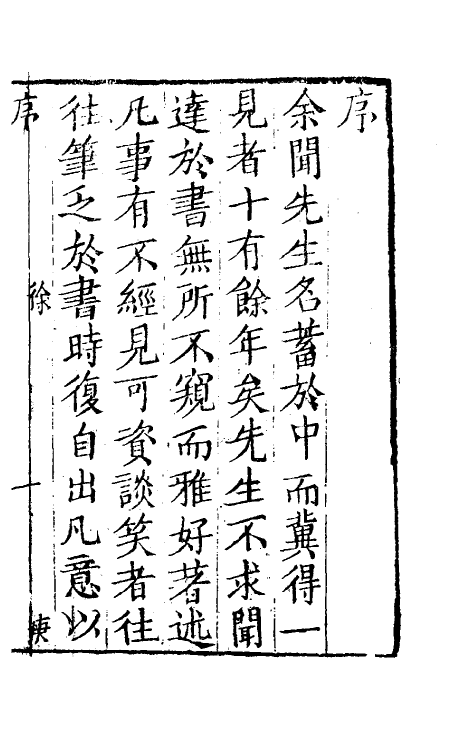 序
余聞先生名蓄於中而冀得一
見者十有餘年矣先生不求聞
達於書無所不窺而雅好著述
凡事有不經見可資談笑者往
往筆之於書時復自出凡意以
序 徐 一